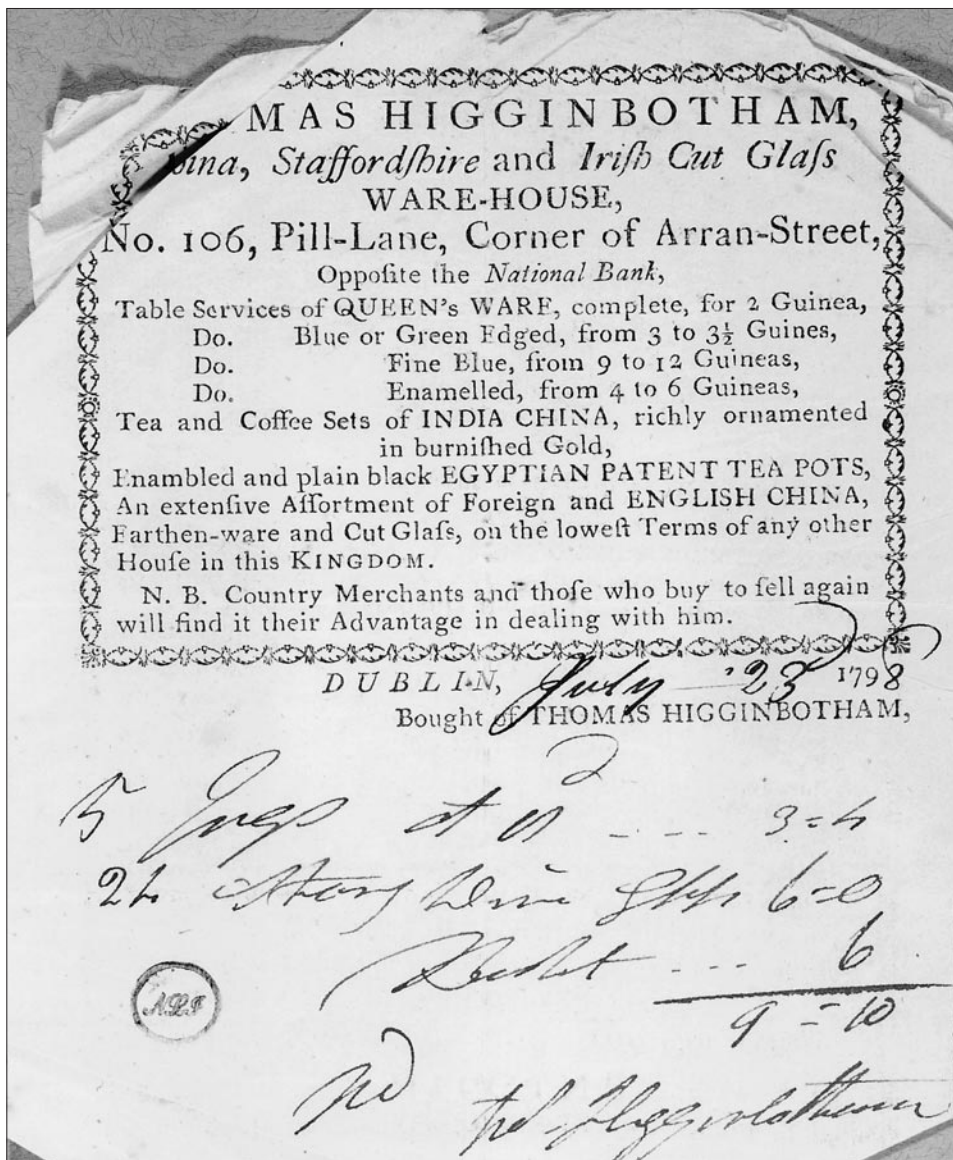 MAS HIGGINBOTHAM,
ina, Staffordſhire and Iriſh Cut Glaſs
WARE-HOUSE,
No. 106, Pill-Lane, Corner of Arran-Street,
Oppoſite the National Bank,
Table Services of QUEEN's WARE, complete, for 2 Guinea,
Do. Blue or Green Edged, from 3 to 3½ Guines,
Do. Fine Blue, from 9 to 12 Guineas,
Do. Enamelled, from 4 to 6 Guineas,
Tea and Coffee Sets of INDIA CHINA, richly ornamented
in burniſhed Gold,
Enambled and plain black EGYPTIAN PATENT TEA POTS,
An extenſive Aſſortment of Foreign and ENGLISH CHINA,
Earthen-ware and Cut Glaſs, on the loweſt Terms of any other
Houſe in this KINGDOM.
N. B. Country Merchants and thoſe who buy to ſell again
will find it their Advantage in dealing with him.
DUBLIN, July 23 1798
Bought of THOMAS HIGGINBOTHAM,
5 Jugs at 8d 3=4
24 Strong Wine 6=0
6
9=10
pd Higginbotham